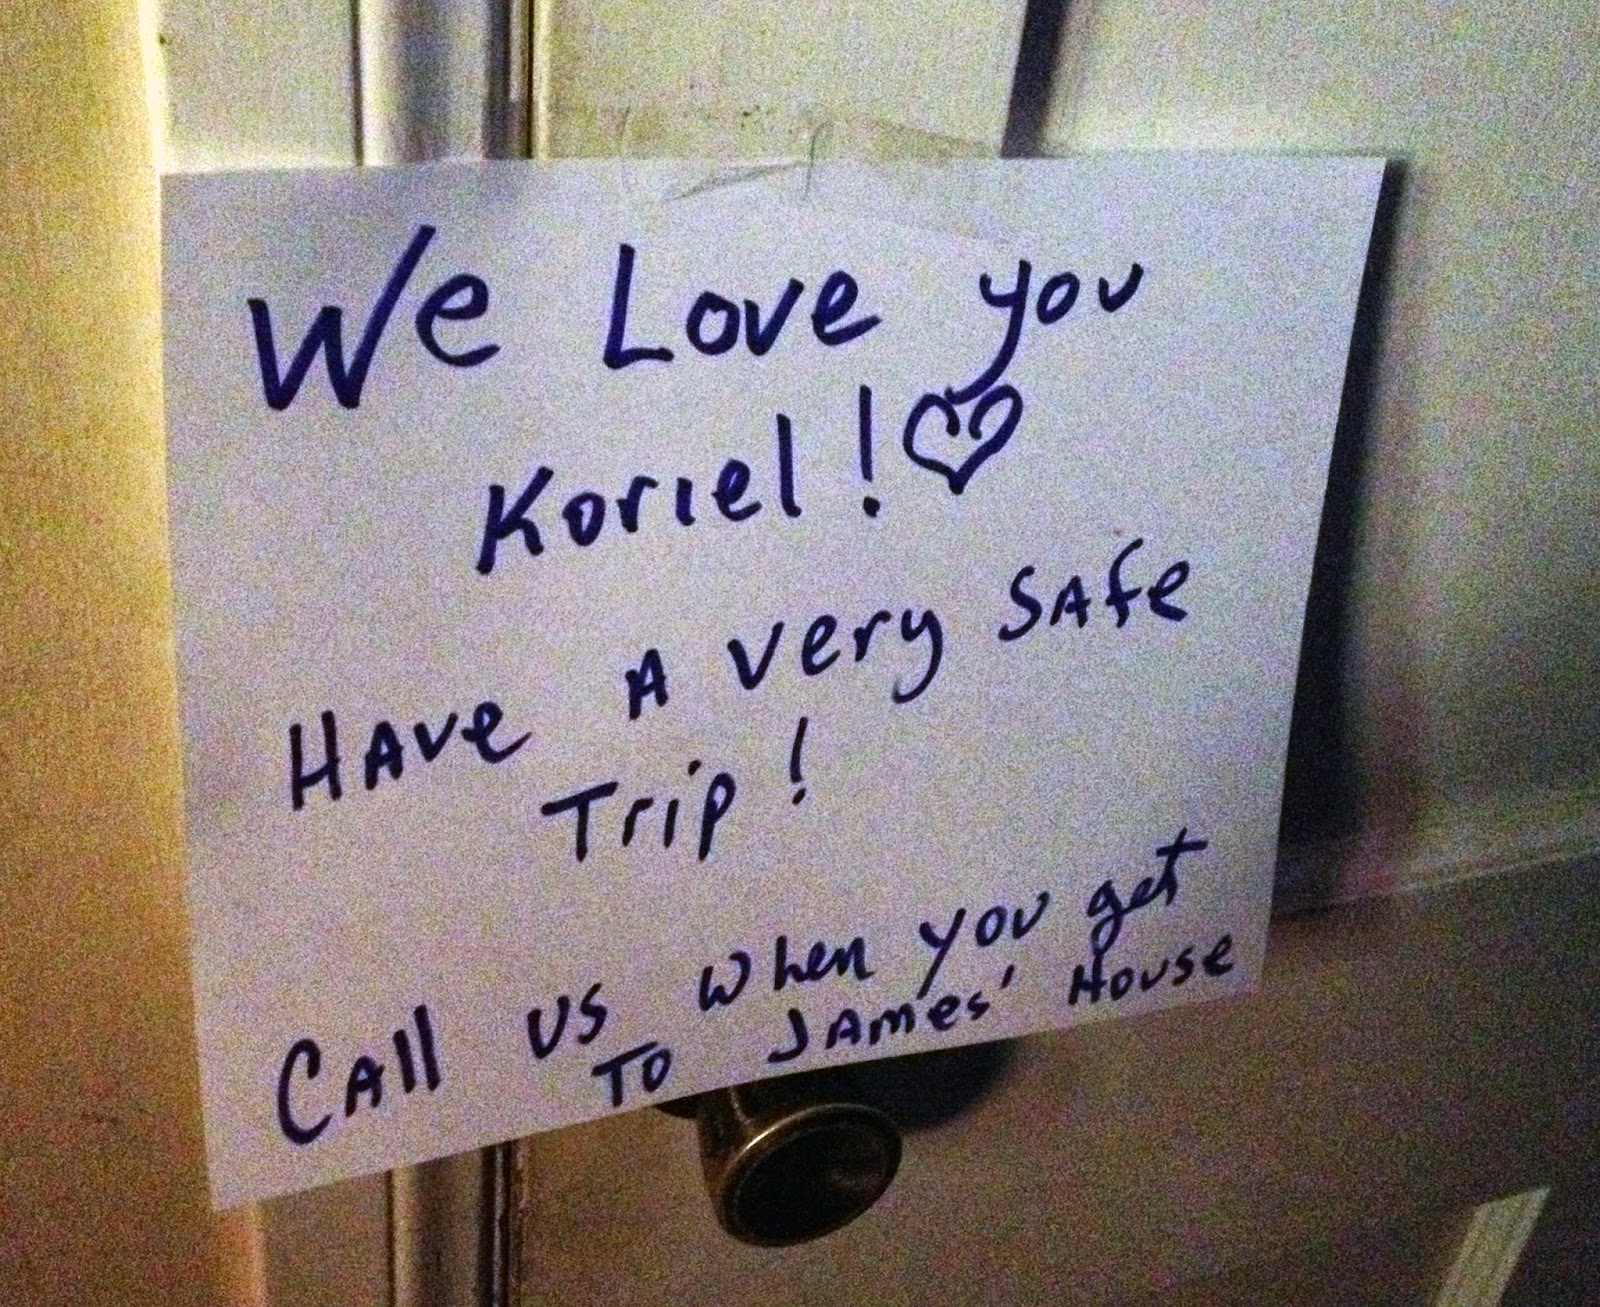 We Love you
Koriel! ♡
HAve A very SAfe
Trip!
CAll us when you get
To JAmes' House